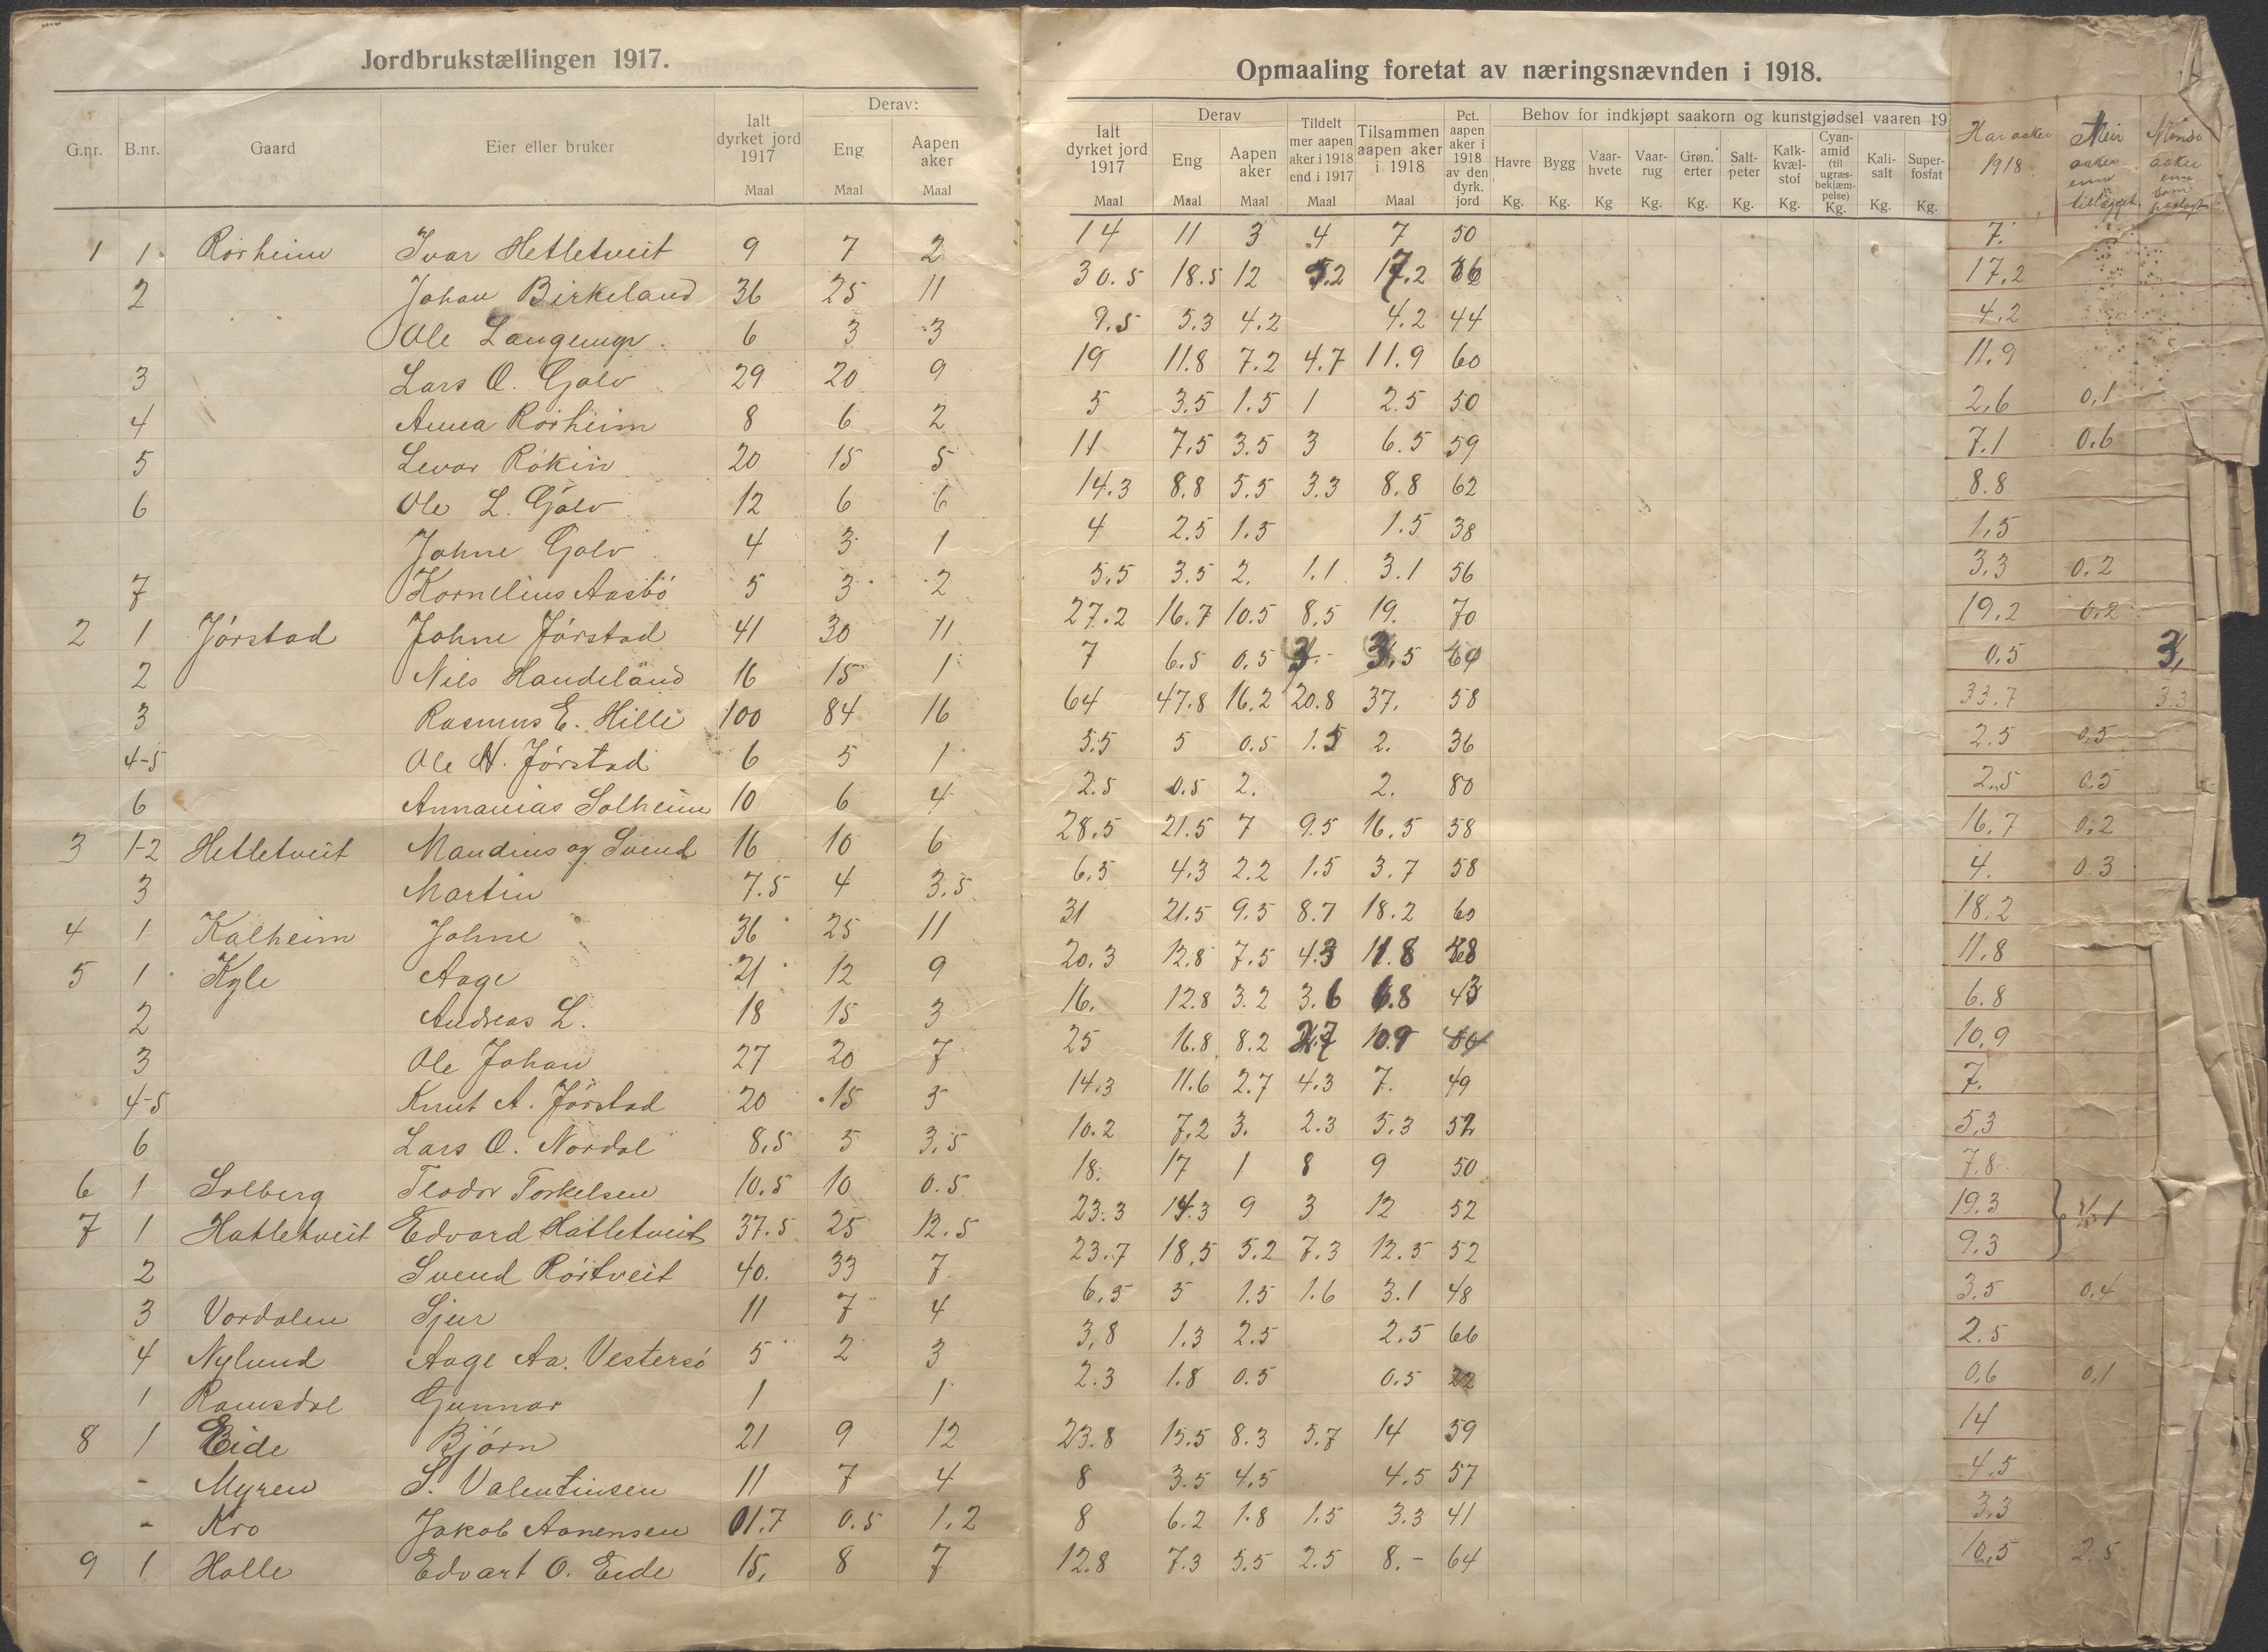 Jordbrukstællingen 1917.
G.nr. B.nr. Gaard Eier eller bruker Ialt dyrket jord 1917 Maal Derav: Eng Maal Aapen aker Maal
1 1 Rørheim Ivar Hetletveit 9 7 2
2 Johan Birkeland 36 25 11
Ole Langeng 6 3 3
3 Lars O. Galv 29 20 9
4 Anna Rørheim 8 6 2
5 Levar Røkin 20 15 5
6 Ole L. Galv 12 6 6
Johne Galv 4 3 1
7 Kornelius Aasbø 5 3 2
2 1 Jørstad Johne Jørstad 41 30 11
2 Nils Handeland 16 15 1
3 Rasmus E. Hille 100 84 16
4-5 Ole N. Jørstad 6 5 1
6 Annanias Solheim 10 6 4
3 1-2 Hetletveit Maudius og Svend 16 10 6
3 Martin 7.5 4 3.5
4 1 Kalheim Johne 36 25 11
5 1 Kyle Aage 21 12 9
2 Andreas L. 18 15 3
3 Ole Johan 27 20 7
4-5 Knut A. Jørstad 20 15 5
6 Lars O. Nordal 8,5 5 3,5
6 1 Solberg Teodor Torkelsen 10.5 10 0.5
7 1 Hatletveit Edvard Hatletveit 37.5 25 12.5
2 Svend Rørtveit 40. 33 7
3 Vordalen Sjur 11 7 4
4 Nylund Aage Aa. Vestersø 5 2 3
1 Ramsdal Gunnar 1 1
8 1 Eide Bjørn 21 9 12
- Myren S. Valentinsen 11 7 4
- Kro Jakob Aanensen 01.7 0.5 1.2
9 1 Halle Edvart O. Eide 15, 8 7
Opmaaling foretat av næringsnævnden i 1918.
Ialt dyrket jord 1917 Maal Derav Eng Maal Aapen aker Maal Tildelt mer aapen aker i 1918 end i 1917 Maal Tilsammen aapen aker i 1918 Maal Pct. aapen aker i 1918 av den dyrk. jord Behov for indkjøpt saakorn og kunstgjødsel vaaren 19 Havre Kg. Bygg Kg. Vaar-hvete Kg Vaar-rug Kg. Grøn. erter Kg. Salt-peter Kg. Kalk-kvæl-stof Kg. Cyan-amid (til ugræs-bekjæm-pelse) Kg. Kali-salt Kg. Super-fosfat Kg. Har aaker 1918 Meir aaker enn tillagt Mindo aaker enn som paalagt
14 11 3 4 7 50 7.
30.5 18.5 12 5.2 17.2 17,2
9.5 5.3 4.2 4.2 44 4.2
19 11.8 7.2 4.7 11.9 60 11.9
5 3.5 1.5 1 2.5 50 2,6 0,1
11 7,5 3.5 3 6.5 59 7.1 0.6
14.3 8.8 5.5 3.3 8.8 62 8.8
4 2.5 1.5 1.5 38 1,5
5,5 3.5 2. 1.1 3.1 56 3,3 0.2
27.2 16.7 10.5 8,5 19. 70 19,2 0,2
7 6.5 0.5 3.- 3.5 0,5 3,
64 47.8 16.2 20.8 37. 58 33.7 3.3
5.5 5 0.5 1.5 2. 36 2.5 0,5
2.5 0.5 2. 2. 80 2.5 0.5
28.5 21.5 7 9.5 16.5 58 16,7 0,2
6.5 4.3 2.2 1.5 3.7 58 4. 0.3
31 21.5 9.5 8.7 18.2 60 18.2
20.3 12.8 7.5 4.3 11.8 11.8
16. 12.8 3.2 3.6 6.8 43 6.8
25 16.8 8.2 2.7 10.9 10,9
14.3 11.6 2.7 4.3 7. 49 7.
10.2 7.2 3. 2.3 5.3 52 5,3
18. 17 1 8 9 50 7.8
23.3 14.3 9 3 12 52 19.3 1
23.7 18,5 5.2 7.3 12.5 52 9.3
6,5 5 1.5 1.6 3.1 48 3,5 0,4
3,8 1.3 2.5 2.5 66 2.5
2.3 1.8 0.5 0.5 22 0,6 0,1
23.8 15.5 8.3 5.7 14 59 14
8 3.5 4,5 4.5 57 4.5
8 6.2 1.8 1.5 3.3 41 3,3
12.8 7.3 5.5 2.5 8.- 64 10,5 2.5